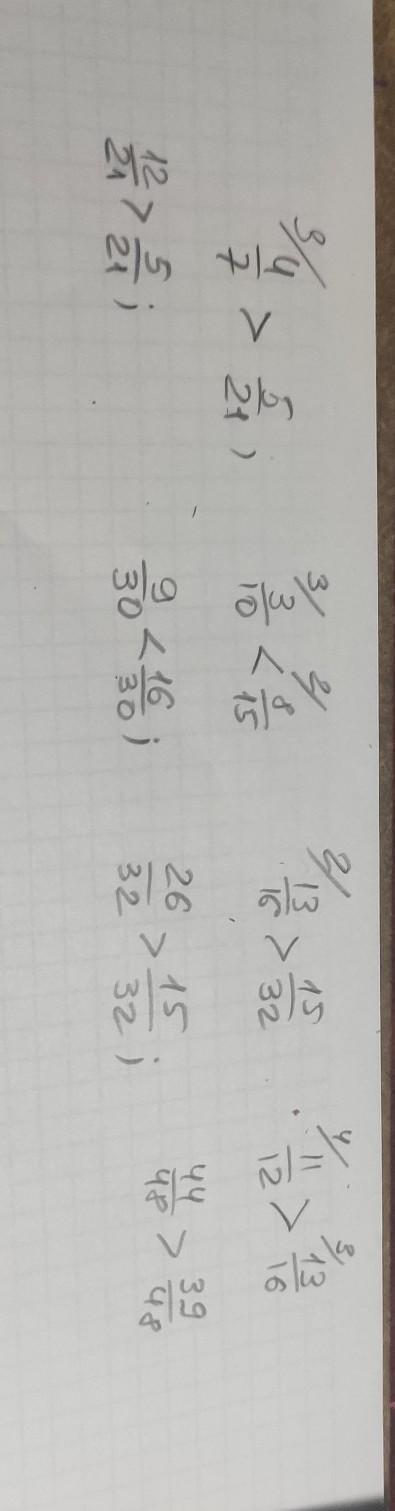 3/ 4/7 > 5/21 ; 3/ 3/10 < 2/ 8/15 2/ 13/16 > 15/32 4/ 11/12 > 3/ 13/16
12/21 > 5/21 ; 9/30 < 16/30 ; 26/32 > 15/32 ; 44/48 > 39/48